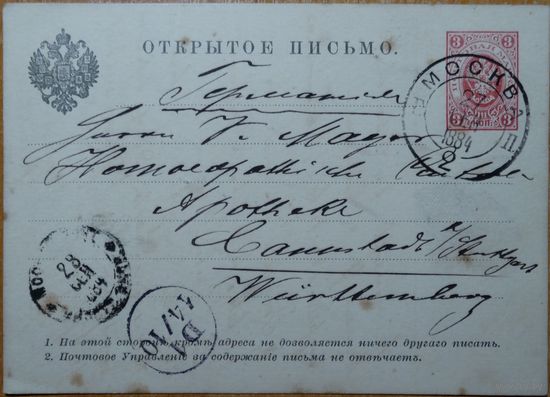 ОТКРЫТОЕ ПИСЬМО.
3 3
3 3
МОСКВА
1884
2
П.
Германія
Herrn V. Mayer
Homoeopathische Central
Apotheke
Cannstadt a/Stuttgart
Württemberg
28
СЕН
1884
1. На этой сторонѣ кромѣ адреса не дозволяется ничего другаго писать.
2. Почтовое Управленіе за содержаніе письма не отвѣчаетъ.